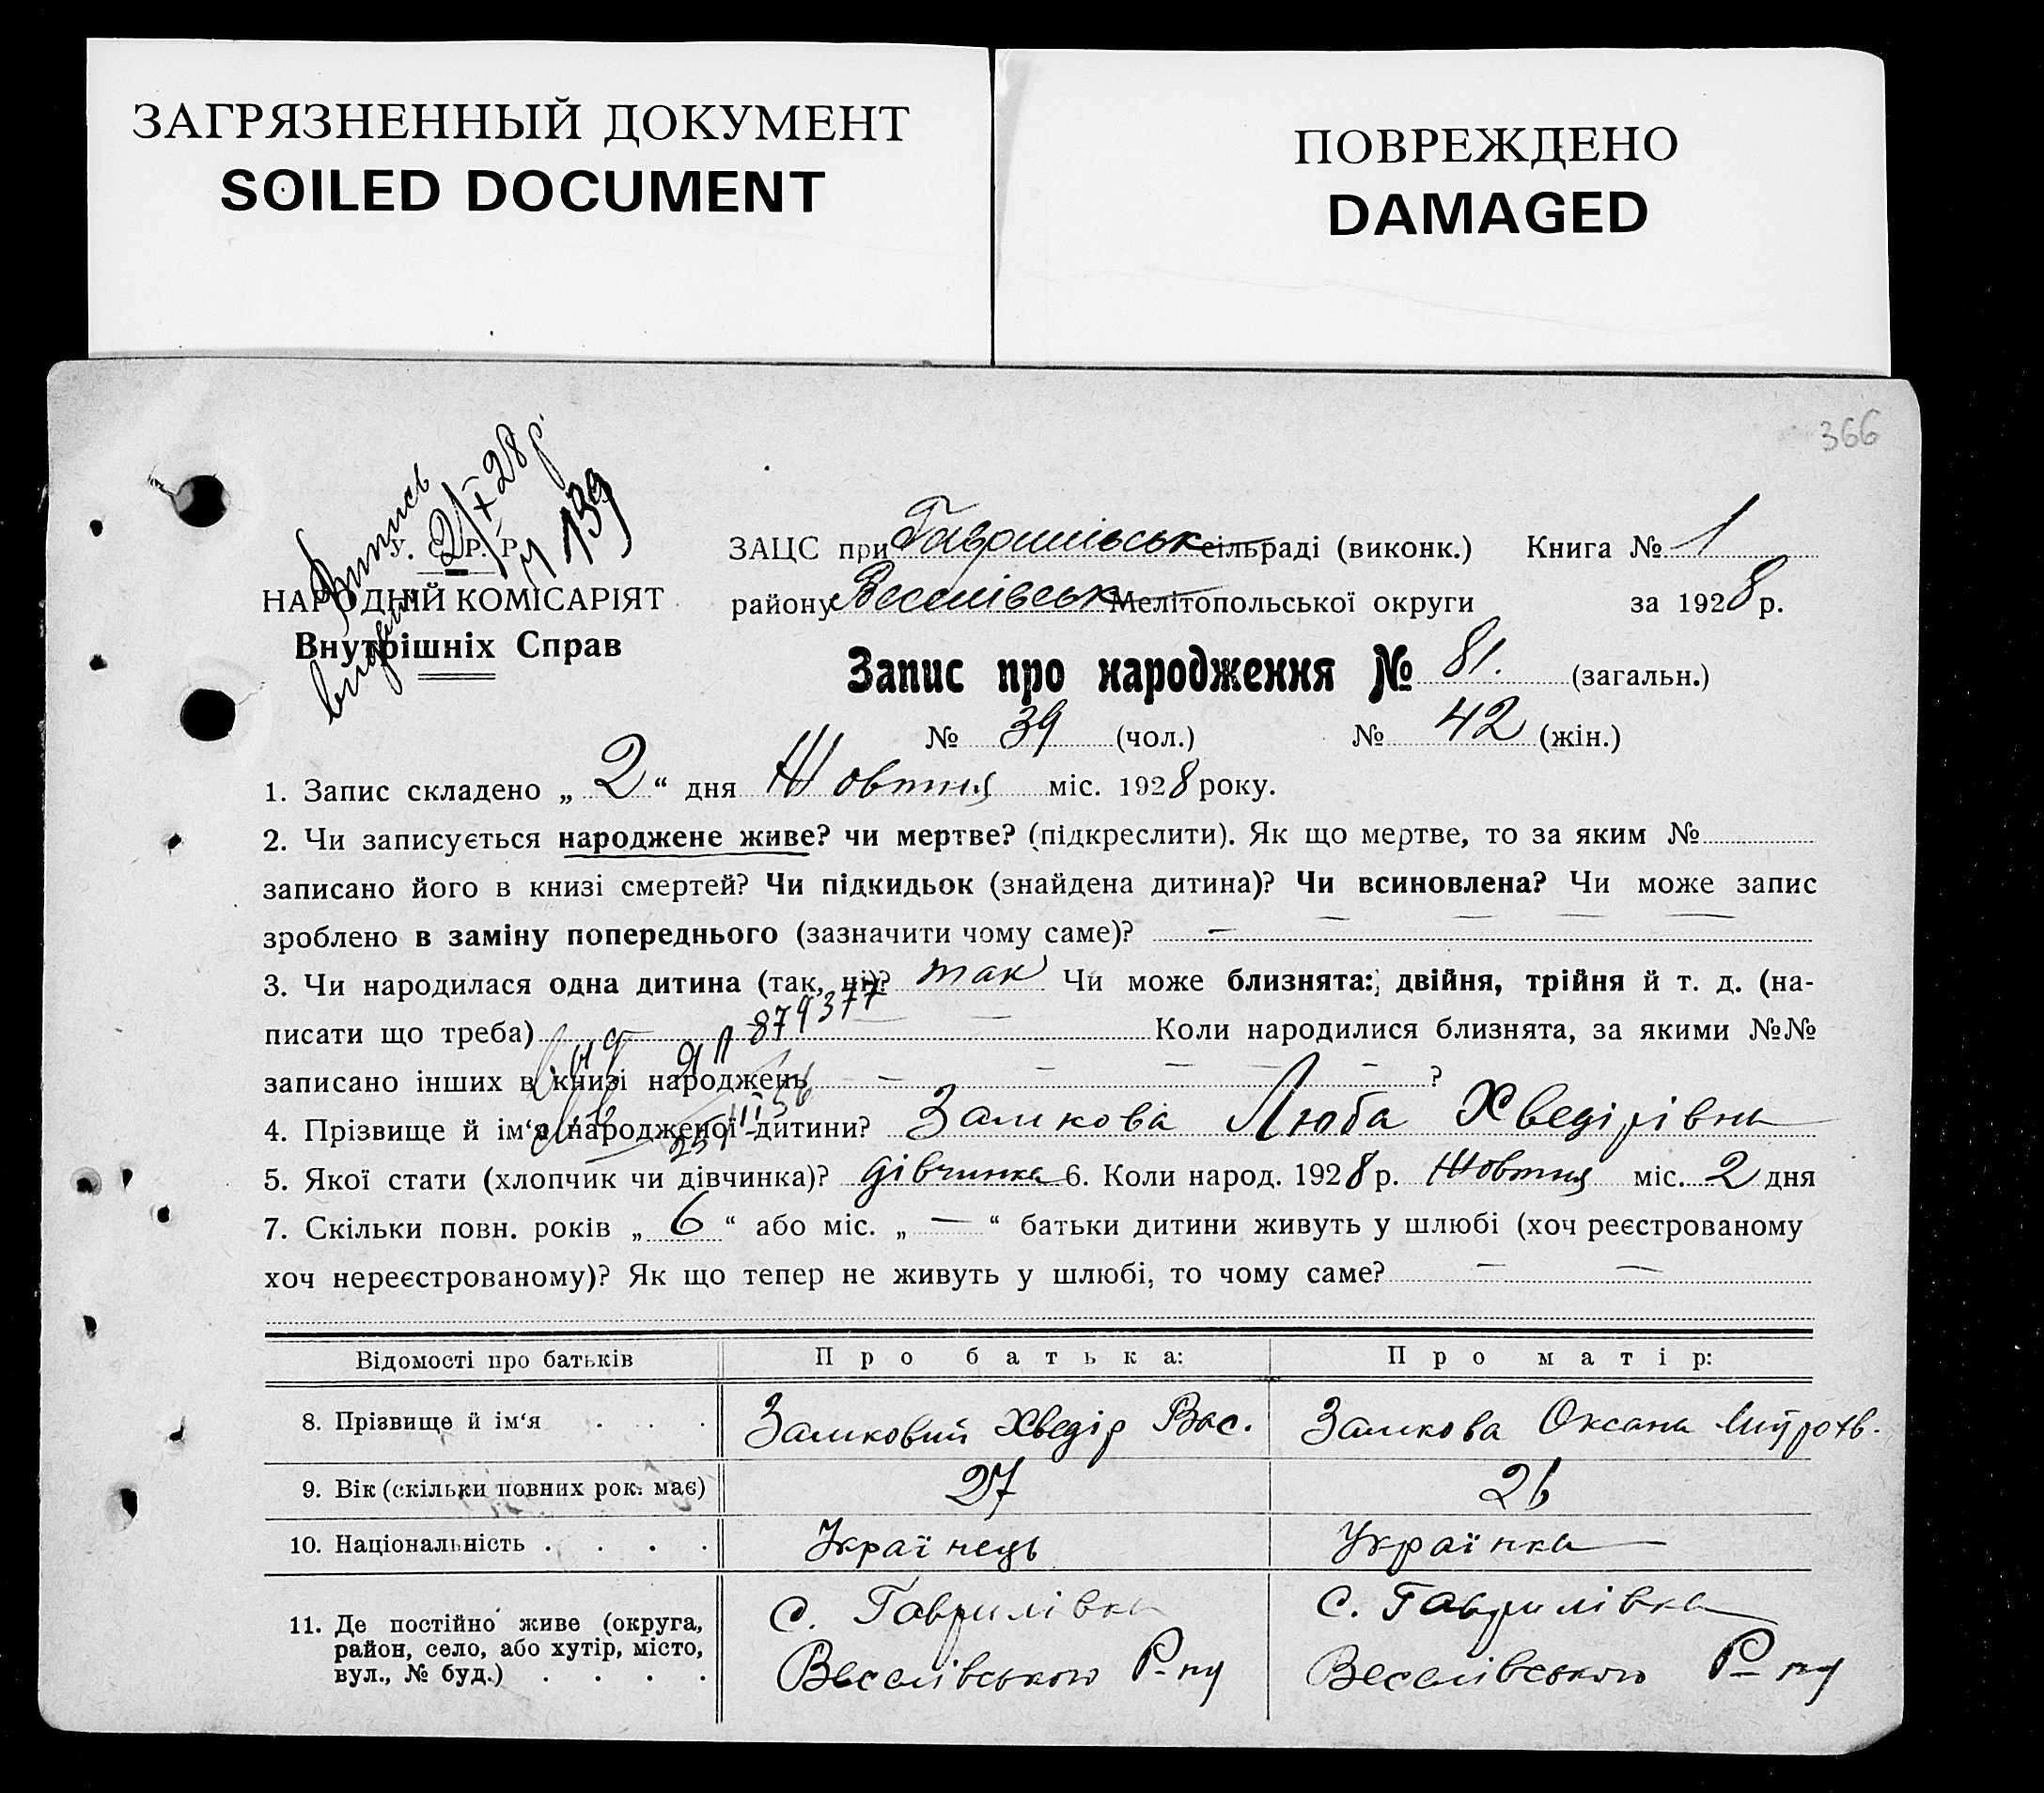 ЗАГРЯЗНЕННЫЙ ДОКУМЕНТ
SOILED DOCUMENT
ПОВРЕЖДЕНО
DAMAGED
366
Випись
видана
2/X 28 р.
ч 139
У. С. Р. Р.
НАРОДНІЙ КОМІСАРІЯТ
Внутрішніх Справ
ЗАЦС при Гаврилівськ сільраді (виконк.) Книга № 1
району Веселівськ Мелітопольської округи за 1928 р.
Запис про народження № 81. (загальн.)
№ 39 (чол.) № 42 (жін.)
1. Запис складено „ 2 “ дня Жовтня міс. 1928 року.
2. Чи записується народжене живе? чи мертве? (підкреслити). Як що мертве, то за яким №
записано його в книзі смертей? Чи підкидьок (знайдена дитина)? Чи всиновлена? Чи може запис
зроблено в заміну попереднього (зазначити чому саме)? —
3. Чи народилася одна дитина (так, ні)? так Чи може близнята: двійня, трійня й т. д. (на-
писати що треба) Коли народилися близнята, за якими №№
879377
записано інших в книзі народжень — — — — ?
4. Прізвище й ім‘я народженої дитини? Замкова Люба Хведірівна
5. Якої стати (хлопчик чи дівчинка)? дівчинка 6. Коли народ. 1928 р. Жовтня міс. 2 дня
7. Скільки повн. років „ 6 “ або міс. „ — “ батьки дитини живуть у шлюбі (хоч реєстрованому
хоч нереєстрованому)? Як що тепер не живуть у шлюбі, то чому саме? — —
Відомості про батьків Про батька: Про матір:
8. Прізвище й ім‘я . . . Замковий Хведір Вас. Замкова Оксана
9. Вік (скільки повних рок. має) 27 26
10. Національність . . . . Українець Українка
11. Де постійно живе (округа, район, село, або хутір, місто, вул., № буд.) . . . .
с. Гаврилівка с. Гаврилівка
Веселівського Р-ну Веселівського Р-ну